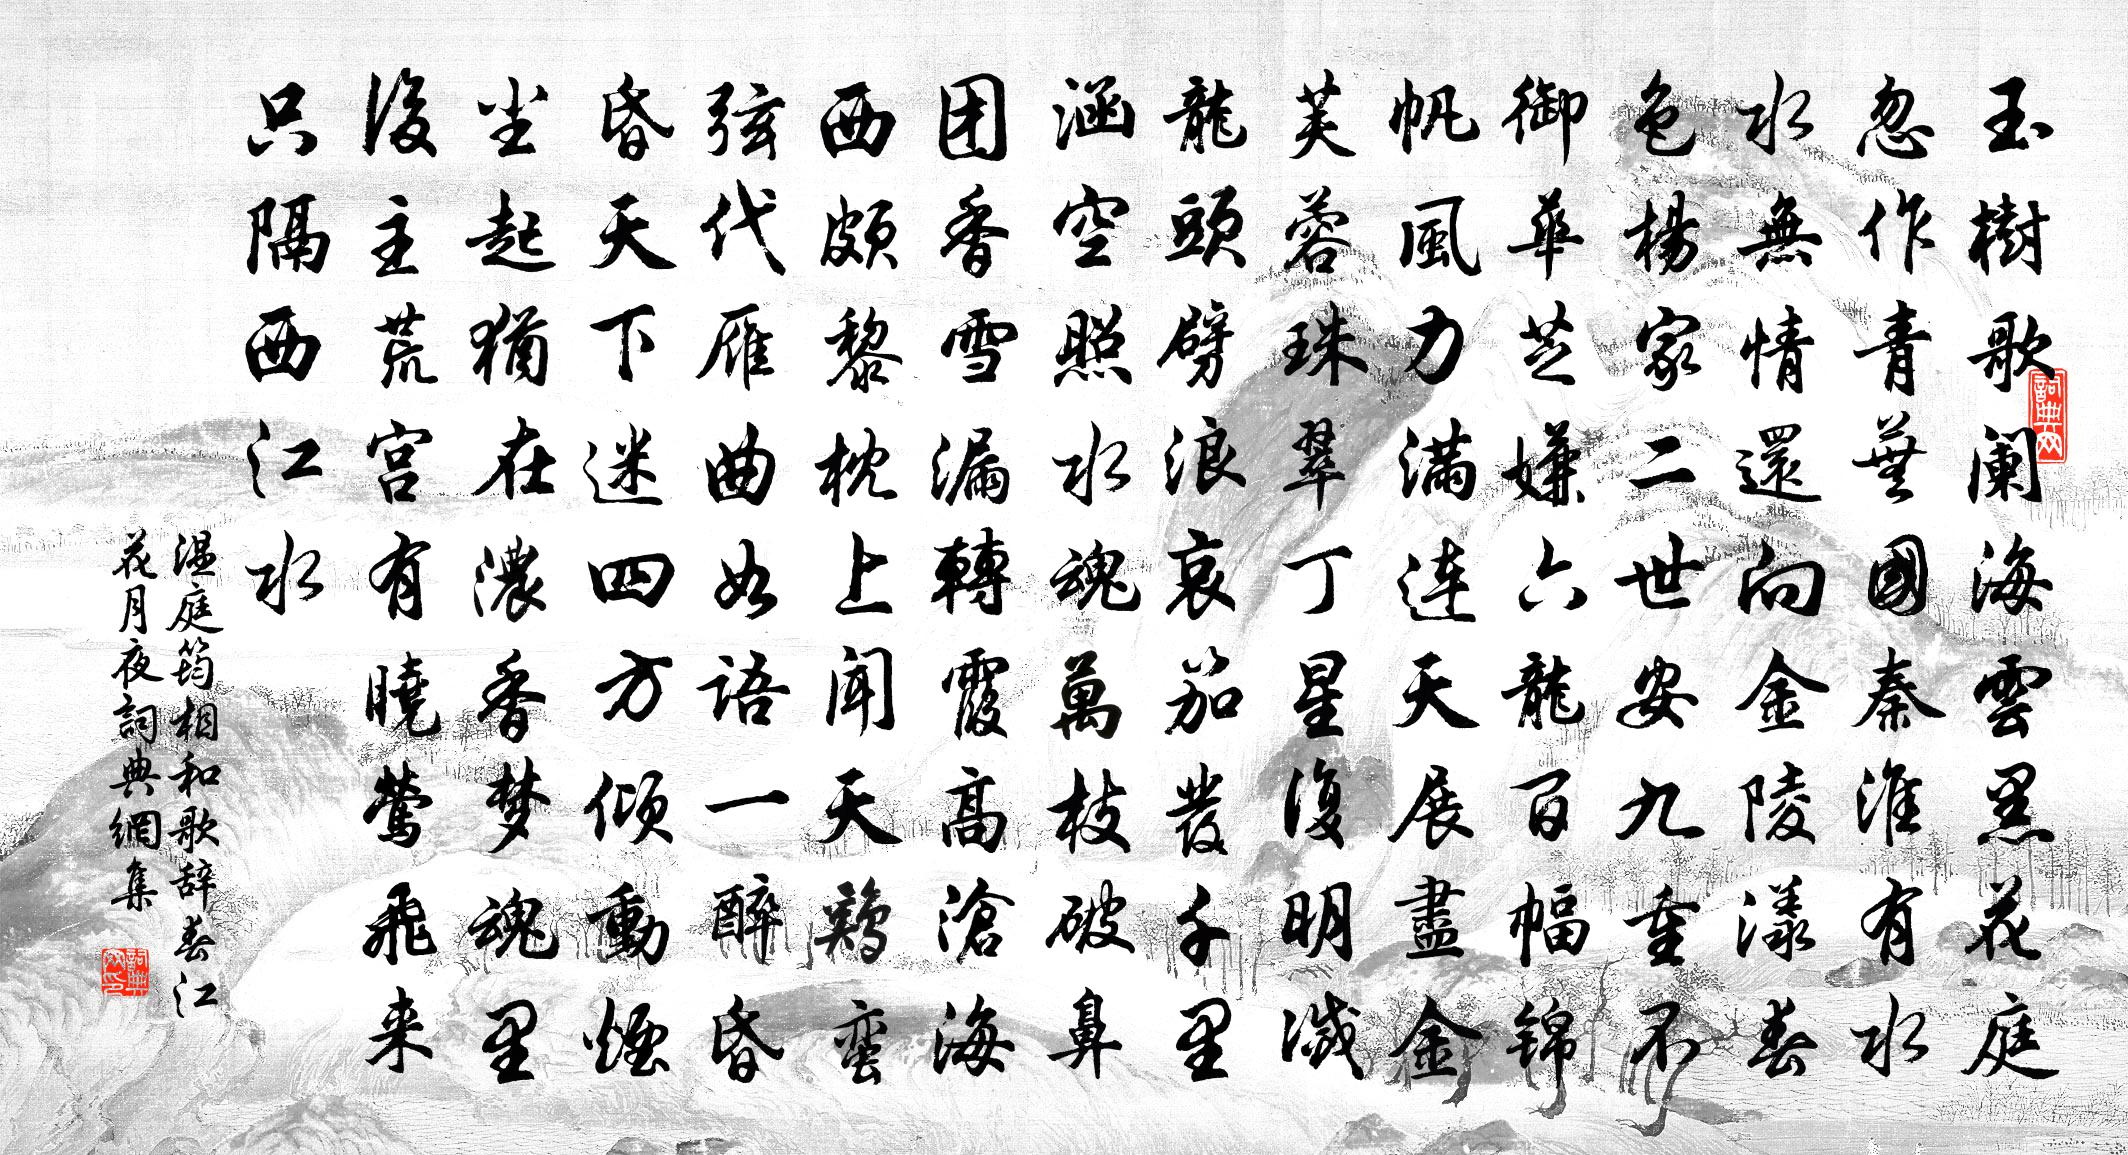 玉樹歌阑海雲黑花庭
忽作青蕪國秦淮有水
水無情還向金陵漾春
色楊家二世安九重不
御華芝嫌六龍百幅锦
帆風力满连天展盡金
芙蓉珠翠丁星復明滅
龍頭劈浪哀笳發千里
涵空照水魂萬枝破鼻
团香雪漏轉霞高滄海
西颇黎枕上闻天鷄蛮
弦代雁曲如语一醉昏
昏天下迷四方倾動煙
尘起猶在濃香梦魂里
後主荒宫有曉莺飛来
只隔西江水
温庭筠相和歌辞春江
花月夜詞典網集
詞典网
詞典网印